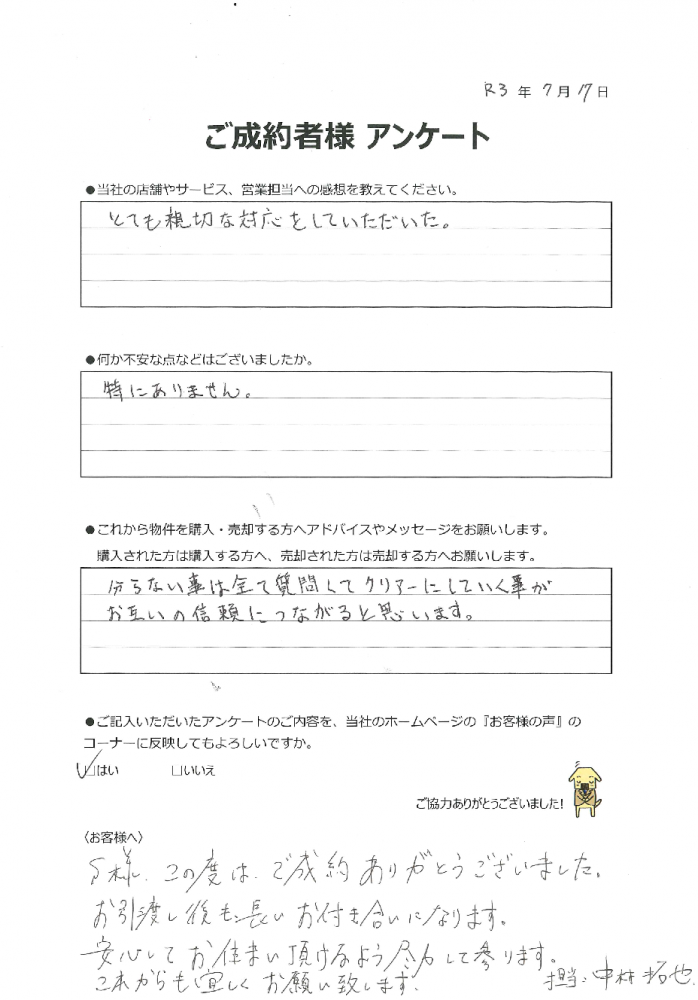 R3年7月17日
ご成約者様 アンケート
●当社の店舗やサービス、営業担当への感想を教えてください。
とても親切な対応をしていただいた。
●何か不安な点などはございましたか。
特にありません。
●これから物件を購入・売却する方へアドバイスやメッセージをお願いします。
購入された方は購入する方へ、売却された方は売却する方へお願いします。
分らない事は全て質問してクリアーにしていく事が
お互いの信頼につながると思います。
●ご記入いただいたアンケートのご内容を、当社のホームページの『お客様の声』の
コーナーに反映してもよろしいですか。
☑はい □いいえ
ご協力ありがとうございました!
〈お客様へ〉
S様、この度は、ご成約ありがとうございました。
お引渡し後も長いお付き合いになります。
安心してお住まい頂けるよう尽力して参ります。
これからも宜しくお願い致します! 担当:中村拓也